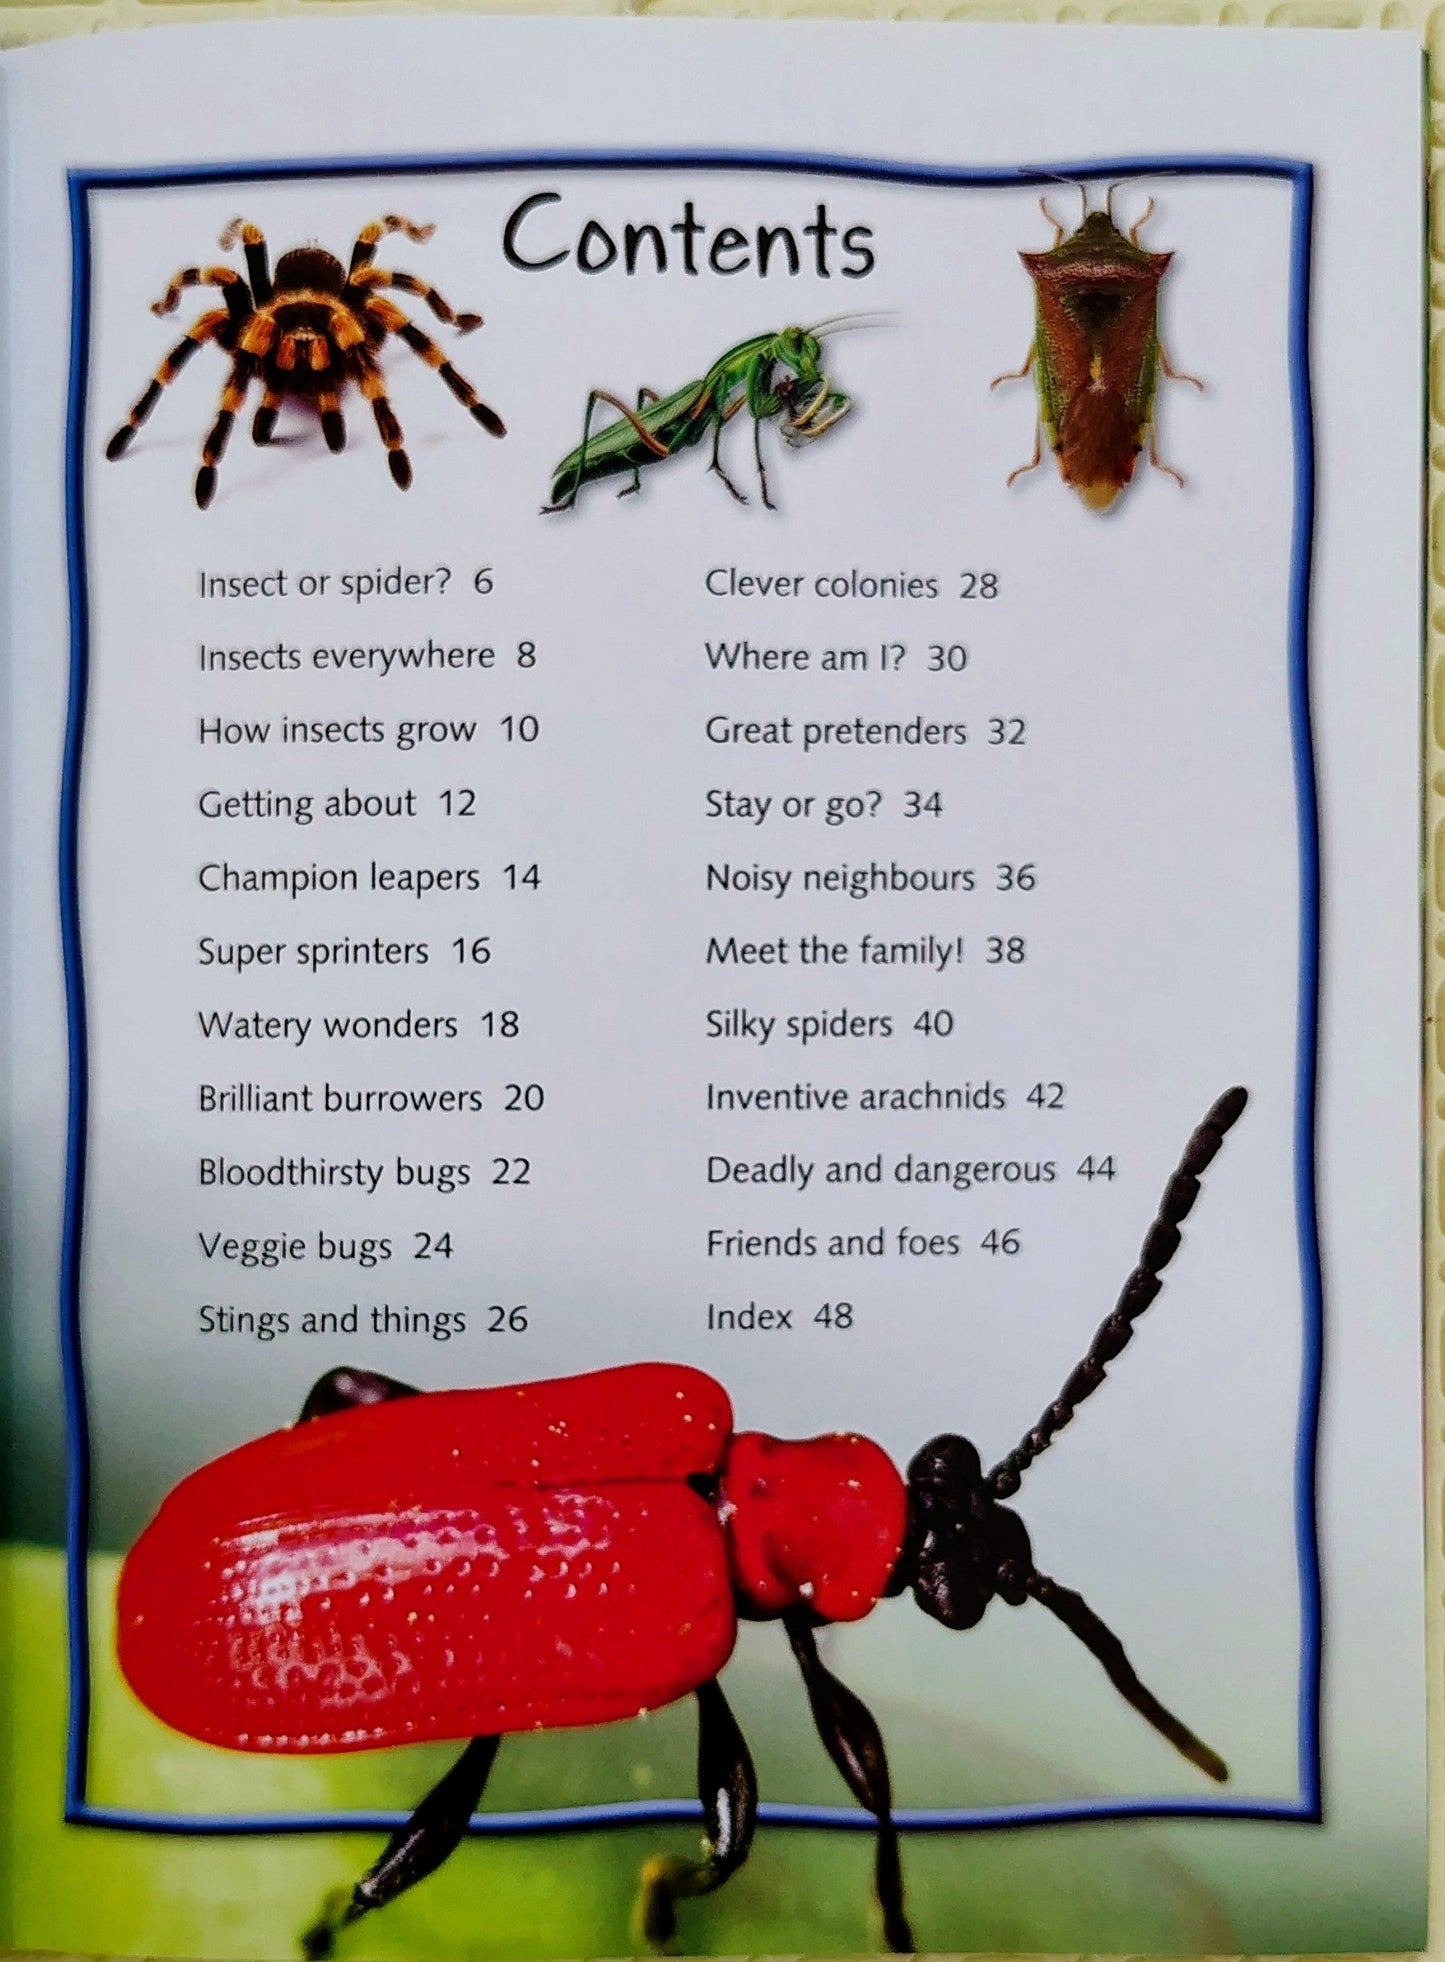 Contents
Insect or spider? 6
Insects everywhere 8
How insects grow 10
Getting about 12
Champion leapers 14
Super sprinters 16
Watery wonders 18
Brilliant burrowers 20
Bloodthirsty bugs 22
Veggie bugs 24
Stings and things 26
Clever colonies 28
Where am I? 30
Great pretenders 32
Stay or go? 34
Noisy neighbours 36
Meet the family! 38
Silky spiders 40
Inventive arachnids 42
Deadly and dangerous 44
Friends and foes 46
Index 48